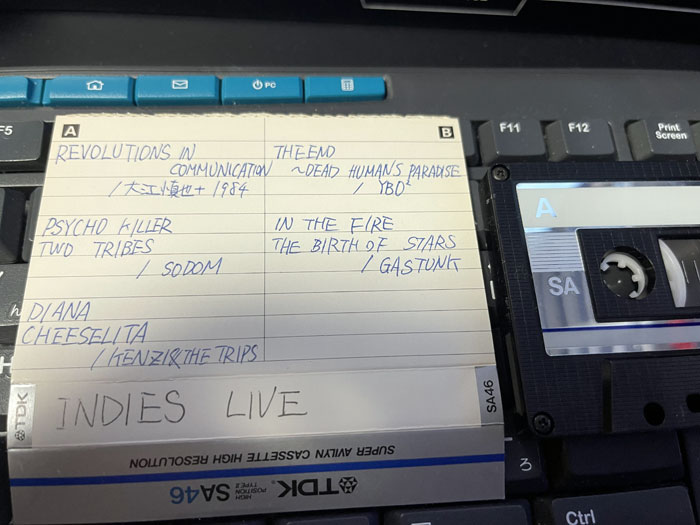 PC
F5
F11
F12
Print
Screen
A
B
REVOLUTIONS IN
COMMUNICATION
/大江慎也+1984
PSYCHO KILLER
TWO TRIBES
/ SODOM
DIANA
CHEESELITA
/KENZI&THE TRIPS
THE END
~DEAD HUMANS PARADISE
/ YBO²
IN THE FIRE
THE BIRTH OF STARS
/ GASTUNK
TDK
INDIES LIVE
SA46
SUPER AVILYN CASSETTE HIGH RESOLUTION
TDK
HIGH
POSITION
TYPE II
SA46
A
SA
3
Ctrl